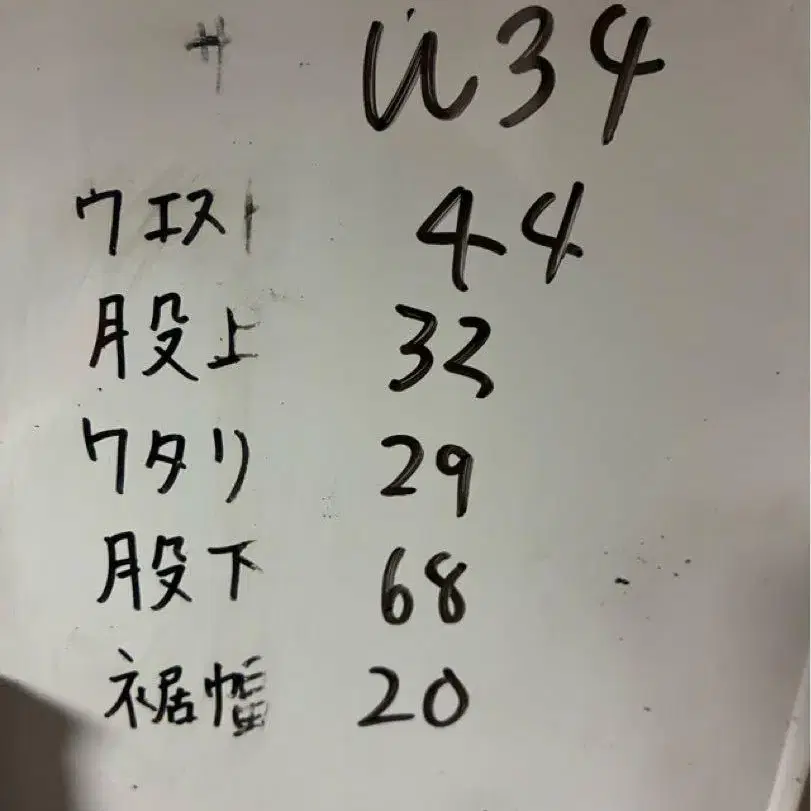 W34
ウエスト 44
股上 33
ワタリ 29
股下 68
裾幅 20